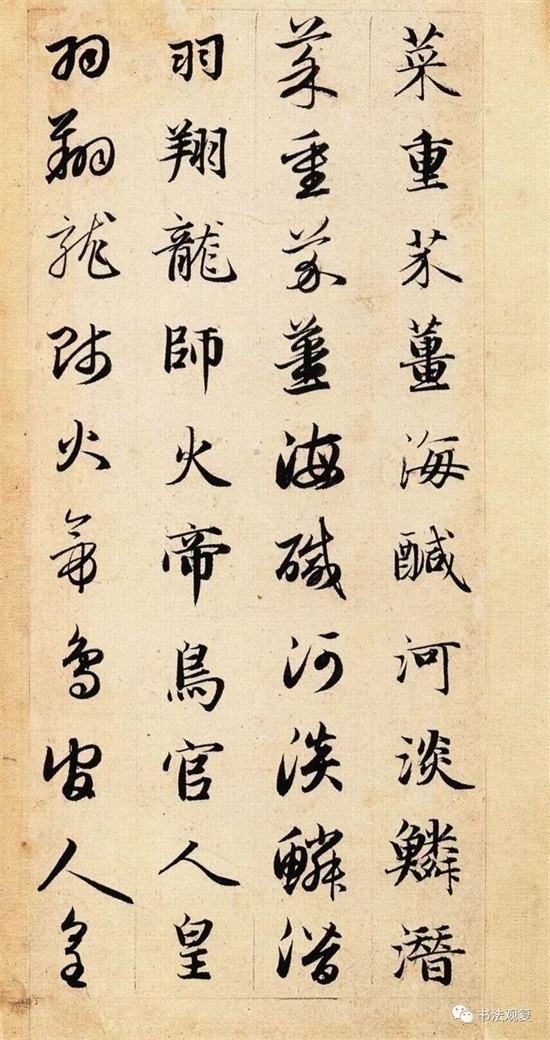 菜重芥薑海醎河淡鱗潛
菜重芥薑海醎河淡鱗潛
羽翔龍師火帝鳥官人皇
羽翔龍師火帝鳥官人皇
书法观复